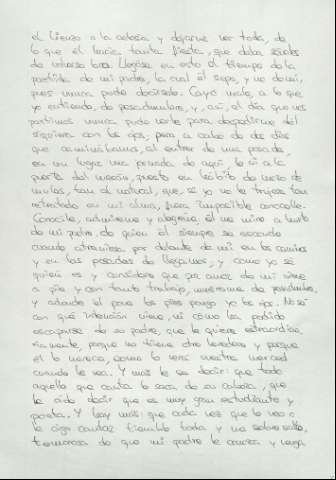 el lienzo a la celosía y dejarme ver toda, de
lo que él hacía tanta fiesta, que daba señales
de volverse loco. Llegóse en esto el tiempo de la
partida de mi padre, la cual él supo, y no de mí,
pues nunca pude decírselo. Cayó malo, a lo que
yo entiendo, de pesadumbre, y, así, el día que nos
partimos nunca pude verle para despedirme del
siquiera con los ojos; pero a cabo de dos días
que caminábamos, al entrar de una posada
en un lugar una jornada de aquí, le vi a la
puerta del mesón, puesto en hábito de mozo de
mulas, tan al natural, que, si yo no le trujera tan
retratado en mi alma, fuera imposible conocelle.
Conocíle, admiréme y alegréme; él me miró a hurto
de mi padre, de quien él siempre se esconde
cuando atraviesa por delante de mí en los caminos
y en las posadas do llegamos; y como yo sé
quién es y considero que por amor de mí viene
a pie y con tanto trabajo, muérome de pesadumbre,
y adonde él pone los pies pongo yo los ojos. No sé
con qué intención viene, ni cómo ha podido
escaparse de su padre, que le quiere extraordina-
riamente, porque no tiene otro heredero y porque
él lo merece, como lo verá vuestra merced
cuando le vea. Y más le sé decir: que todo
aquello que canta lo saca de su cabeza, que
he oído decir que es muy gran estudiante y
poeta. Y hay más: que cada vez que le veo o
le oigo cantar tiemblo toda y me sobresalto,
temerosa de que mi padre le conozca y venga